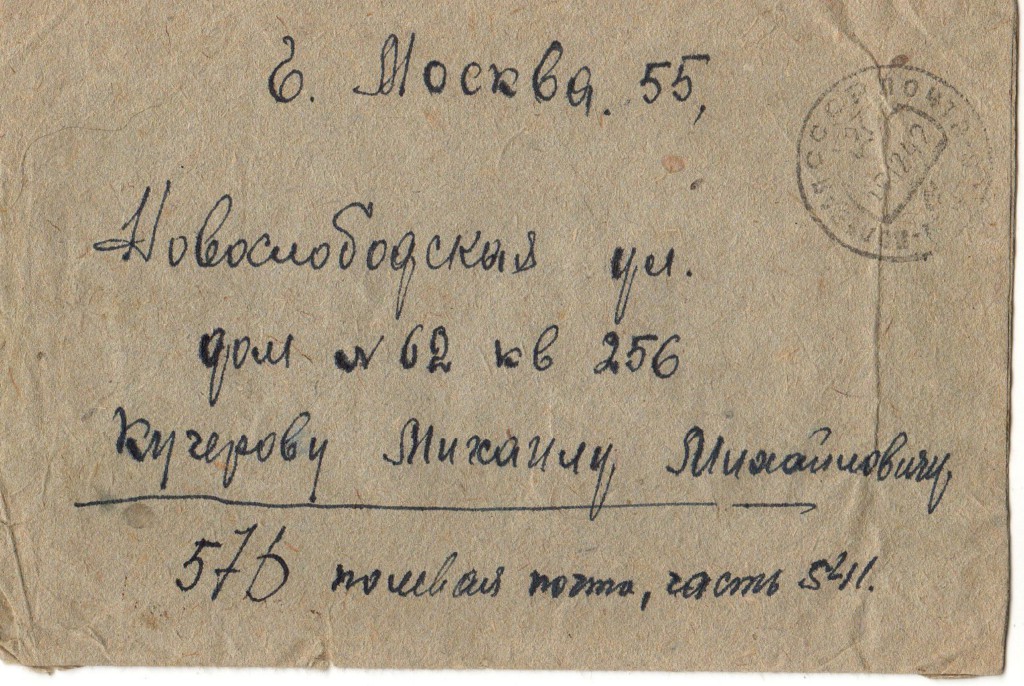 г. Москва. 55,
Новослободская ул.
дом № 62 кв 256
Кучерову Михаилу Михайловичу,
полевая почта, часть
СССР ПОЧТА